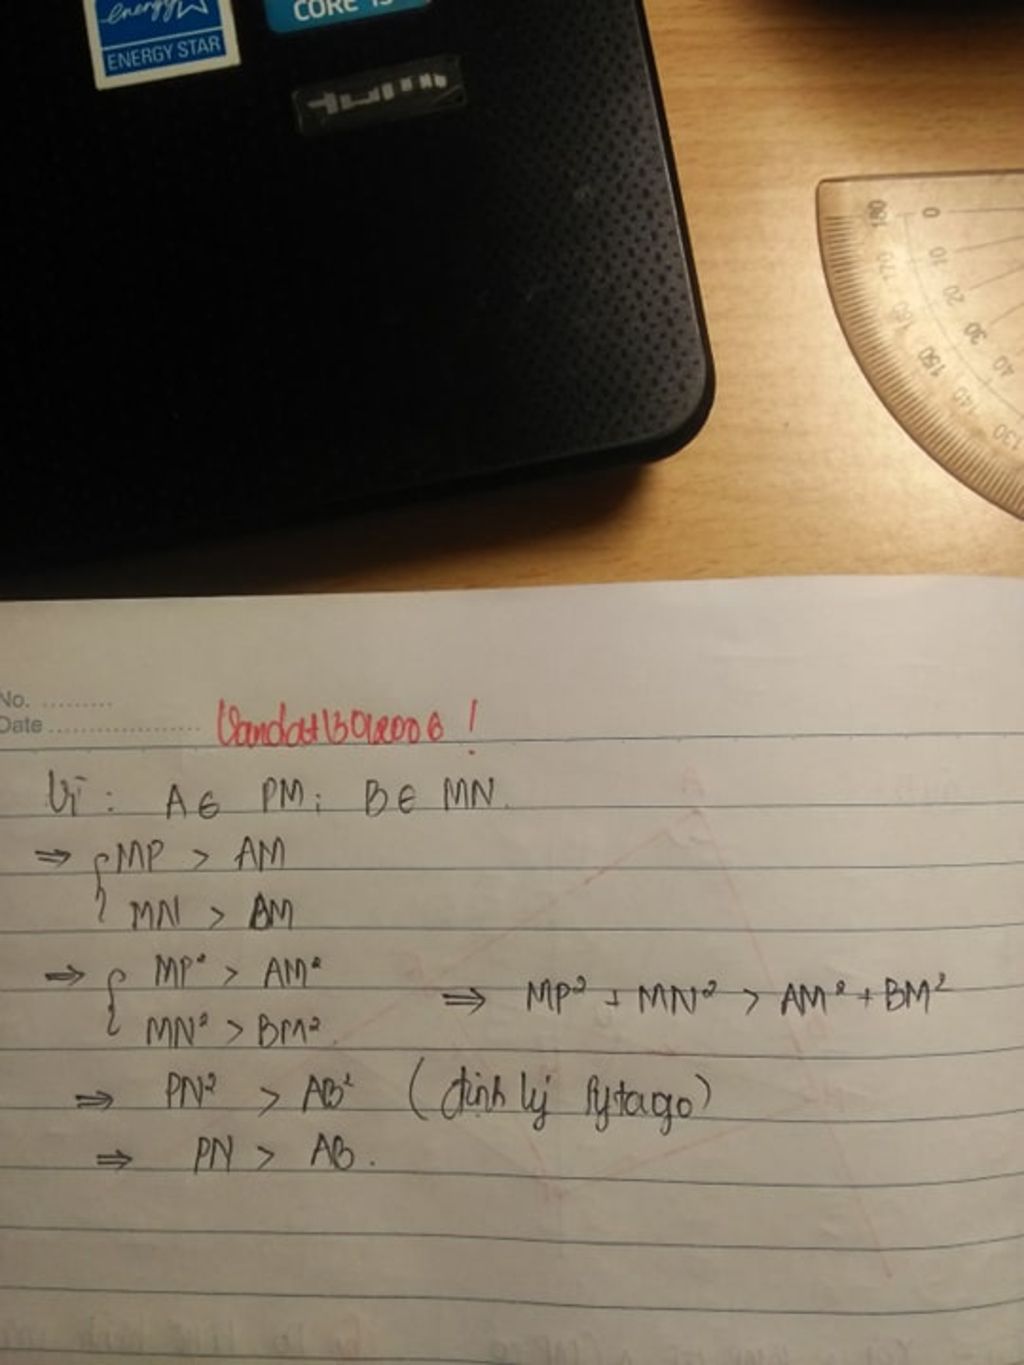 energy
ENERGY STAR
CORE i5
180 0
170 10
160 20
150 30
140 40
130
No. ..........
Date ....................
Vandat13012006 !
Vì : A ∈ PM ; B ∈ MN.
⇒ { MP > AM
MN > BM
⇒ { MP² > AM²
MN² > BM²
⇒ MP² + MN² > AM² + BM²
⇒ PN² > AB² ( định lý Pytago )
⇒ PN > AB .